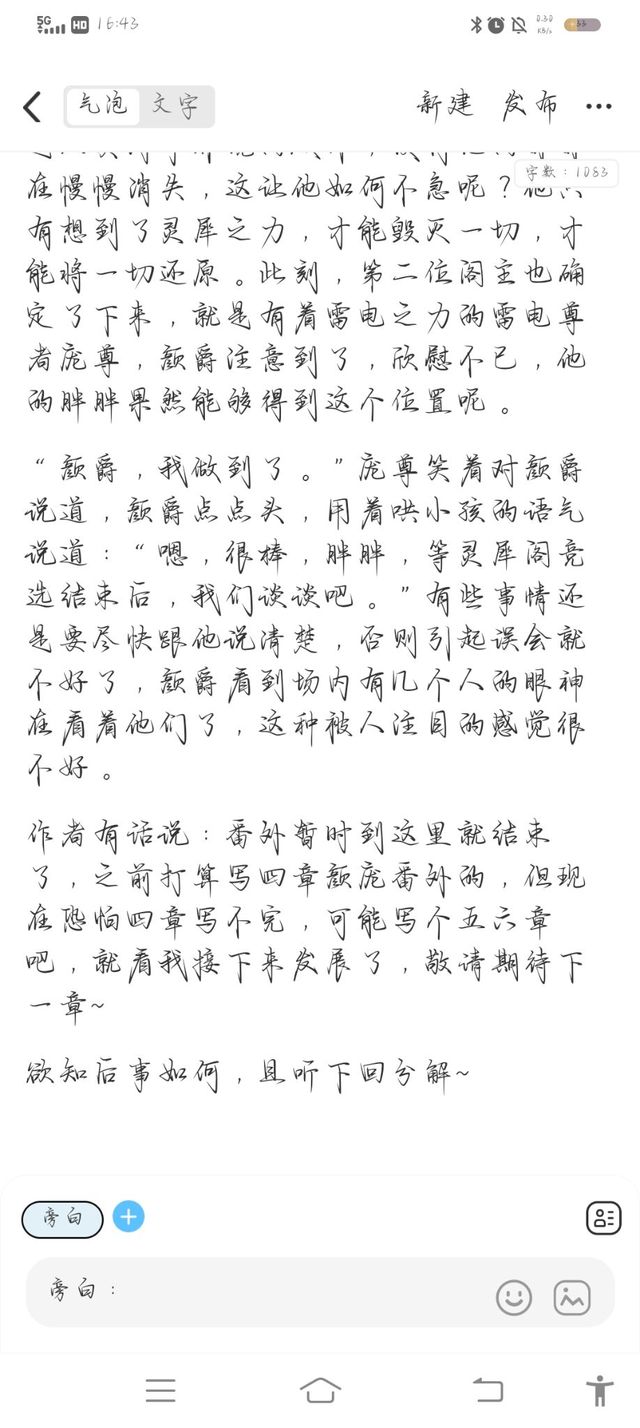 5G HD 16:43 0.30 KB/s 33
气泡 文字 新建 发布 ...
字数：1083
在慢慢消失，这让他如何不急呢？他只
有想到了灵犀之力，才能毁灭一切，才
能将一切还原。此刻，第二位阁主也确
定了下来，就是有着雷电之力的雷电尊
者庞尊，颜爵注意到了，欣慰不已，他
的胖胖果然能够得到这个位置呢。
“颜爵，我做到了。”庞尊笑着对颜爵
说道，颜爵点点头，用着哄小孩的语气
说道：“嗯，很棒，胖胖，等灵犀阁竞
选结束后，我们谈谈吧。”有些事情还
是要尽快跟他说清楚，否则引起误会就
不好了，颜爵看到场内有几个人的眼神
在看着他们了，这种被人注目的感觉很
不好。
作者有话说：番外暂时到这里就结束
了，之前打算写四章颜庞番外的，但现
在恐怕四章写不完，可能写个五六章
吧，就看我接下来发展了，敬请期待下
一章~
欲知后事如何，且听下回分解~
旁白
旁白：